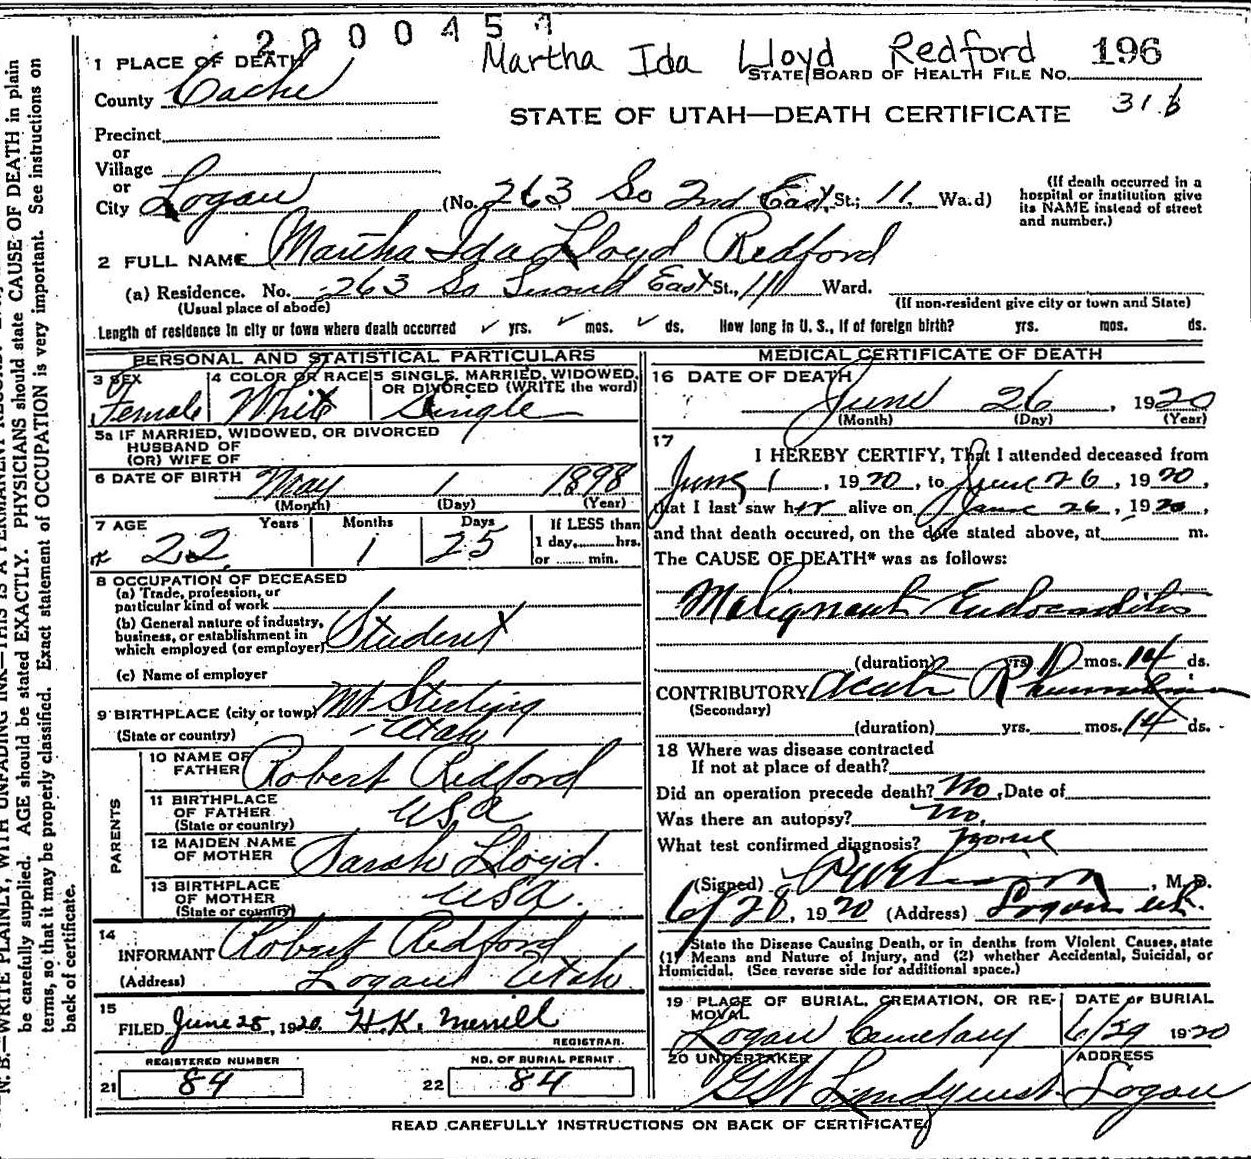 2000454
Martha Ida Lloyd Redford 196
STATE BOARD OF HEALTH FILE NO.
316
1 PLACE OF DEATH
County Cache
STATE OF UTAH—DEATH CERTIFICATE
Precinct
or
Village
or
City Logan (No. 263 So 2nd East St.; 11. Wa.d)
(If death occurred in a
hospital or institution give
its NAME instead of street
and number.)
2 FULL NAME Martha Ida Lloyd Redford
(a) Residence. No. 263 So Second East St., 11 Ward.
(Usual place of abode) (If non-resident give city or town and State)
Length of residence in city or town where death occurred ✓ yrs. ✓ mos. ✓ ds. How long in U. S., if of foreign birth? yrs. mos. ds.
PERSONAL AND STATISTICAL PARTICULARS
3 SEX Female
4 COLOR OR RACE White
5 SINGLE, MARRIED, WIDOWED,
OR DIVORCED (WRITE the word)
Single
5a IF MARRIED, WIDOWED, OR DIVORCED
HUSBAND OF
(OR) WIFE OF
6 DATE OF BIRTH May 1 1898
(Month) (Day) (Year)
7 AGE Years Months Days If LESS than
22 1 25 1 day, hrs.
or min.
8 OCCUPATION OF DECEASED
(a) Trade, profession, or
particular kind of work
(b) General nature of industry,
business, or establishment in
which employed (or employer) Student
(c) Name of employer
9 BIRTHPLACE (city or town) Mt Sterling
(State or country) Utah
PARENTS
10 NAME OF
FATHER Robert Redford
11 BIRTHPLACE
OF FATHER
(State or country) USA
12 MAIDEN NAME
OF MOTHER Sarah Lloyd.
13 BIRTHPLACE
OF MOTHER
(State or country) USA.
14
INFORMANT Robert Redford
(Address) Logan Utah
15
FILED June 28, 1920. H.K. Merrill
REGISTRAR.
REGISTERED NUMBER NO. OF BURIAL PERMIT
21 84 22 84
MEDICAL CERTIFICATE OF DEATH
16 DATE OF DEATH
June 26, 1920
(Month) (Day) (Year)
17
I HEREBY CERTIFY, That I attended deceased from
June 1, 1920, to June 26, 1920,
that I last saw her alive on June 26, 1920,
and that death occured, on the date stated above, at m.
The CAUSE OF DEATH* was as follows:
Malignant Endocarditis
(duration) yrs. mos. 14 ds.
CONTRIBUTORY Acute Rheumatism
(Secondary)
(duration) yrs. mos. 14 ds.
18 Where was disease contracted
If not at place of death?
Did an operation precede death? No, Date of
Was there an autopsy? No.
What test confirmed diagnosis? None
(Signed) , M.D.
6/28, 1920 (Address) Logan Ut.
State the Disease Causing Death, or in deaths from Violent Causes, state
(1) Means and Nature of Injury, and (2) whether Accidental, Suicidal, or
Homicidal. (See reverse side for additional space.)
19 PLACE OF BURIAL, CREMATION, OR RE-
MOVAL
Logan Cemetary
DATE OF BURIAL
6/29 1920
20 UNDERTAKER
Lindquist
ADDRESS
Logan
READ CAREFULLY INSTRUCTIONS ON BACK OF CERTIFICATE
N. B.—WRITE PLAINLY, WITH UNFADING INK—THIS IS A PERMANENT RECORD.
be carefully supplied. AGE should be stated EXACTLY. PHYSICIANS should state CAUSE OF DEATH in plain
terms, so that it may be properly classified. Exact statement of OCCUPATION is very important. See instructions on
back of certificate.